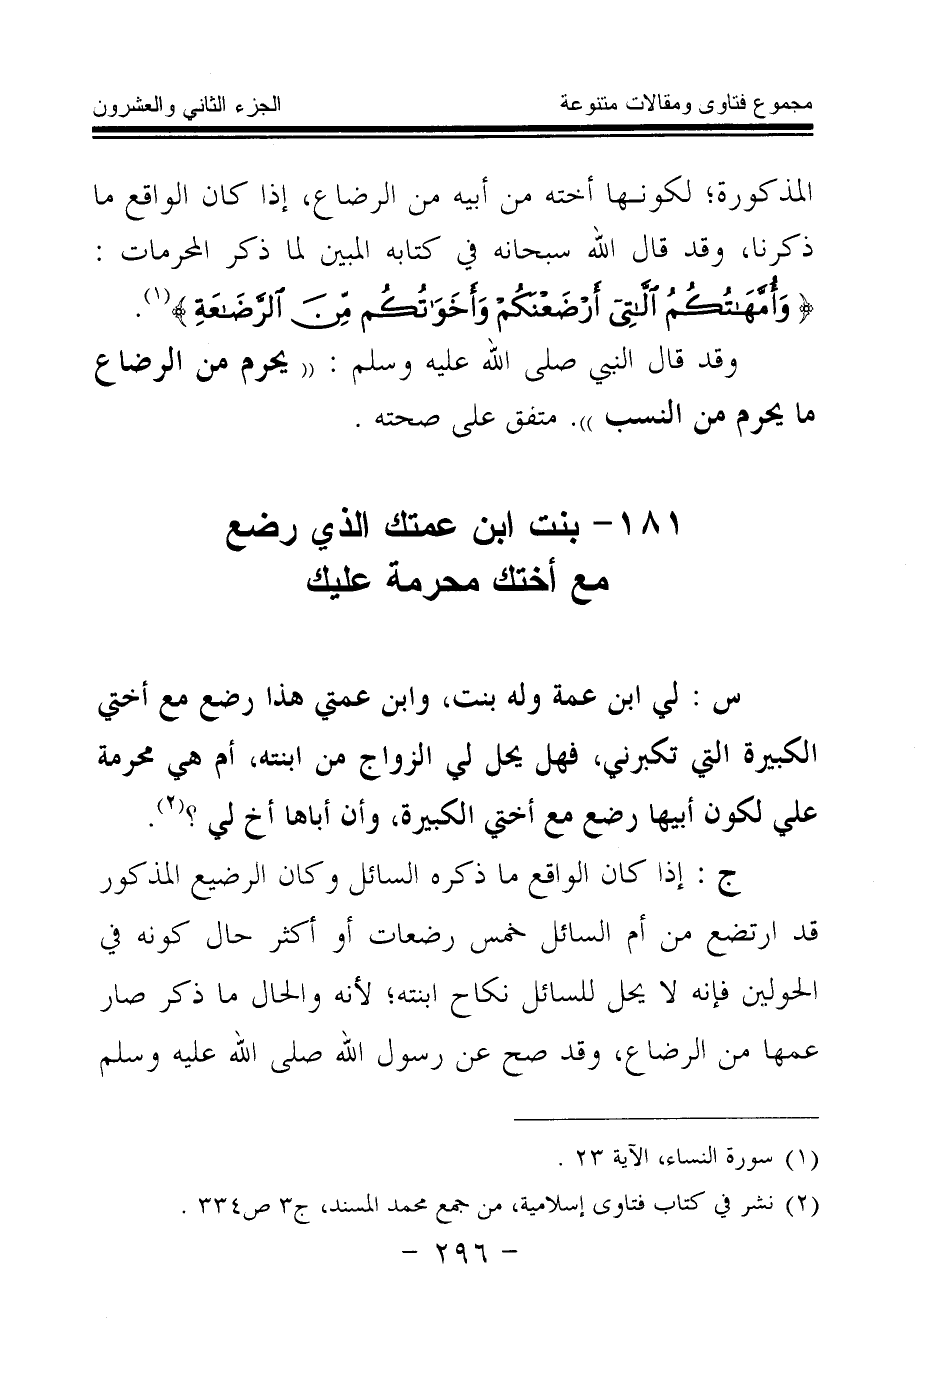 مجموع فتاوى ومقالات متنوعة
الجزء الثاني والعشرون
المذكورة؛ لكونها أخته من أبيه من الرضاع، إذا كان الواقع ما
ذكرنا، وقد قال الله سبحانه في كتابه المبين لما ذكر المحرمات :
﴿ وَأُمَّهَٰتُكُمُ ٱلَّٰتِىٓ أَرْضَعْنَكُمْ وَأَخَوَٰتُكُم مِّنَ ٱلرَّضَٰعَةِ ﴾(١).
وقد قال النبي صلى الله عليه وسلم : (( يحرم من الرضاع
ما يحرم من النسب )). متفق على صحته .
١٨١- بنت ابن عمتك الذي رضع
مع أختك محرمة عليك
س : لي ابن عمة وله بنت، وابن عمتي هذا رضع مع أختي
الكبيرة التي تكبرني، فهل يحل لي الزواج من ابنته، أم هي محرمة
علي لكون أبيها رضع مع أختي الكبيرة، وأن أباها أخ لي ؟(٢).
ج : إذا كان الواقع ما ذكره السائل وكان الرضيع المذكور
قد ارتضع من أم السائل خمس رضعات أو أكثر حال كونه في
الحولين فإنه لا يحل للسائل نكاح ابنته؛ لأنه والحال ما ذكر صار
عمها من الرضاع، وقد صح عن رسول الله صلى الله عليه وسلم
(١) سورة النساء، الآية ٢٣ .
(٢) نشر في كتاب فتاوى إسلامية، من جمع محمد المسند، ج٣ ص٣٣٤ .
- ٢٩٦ -